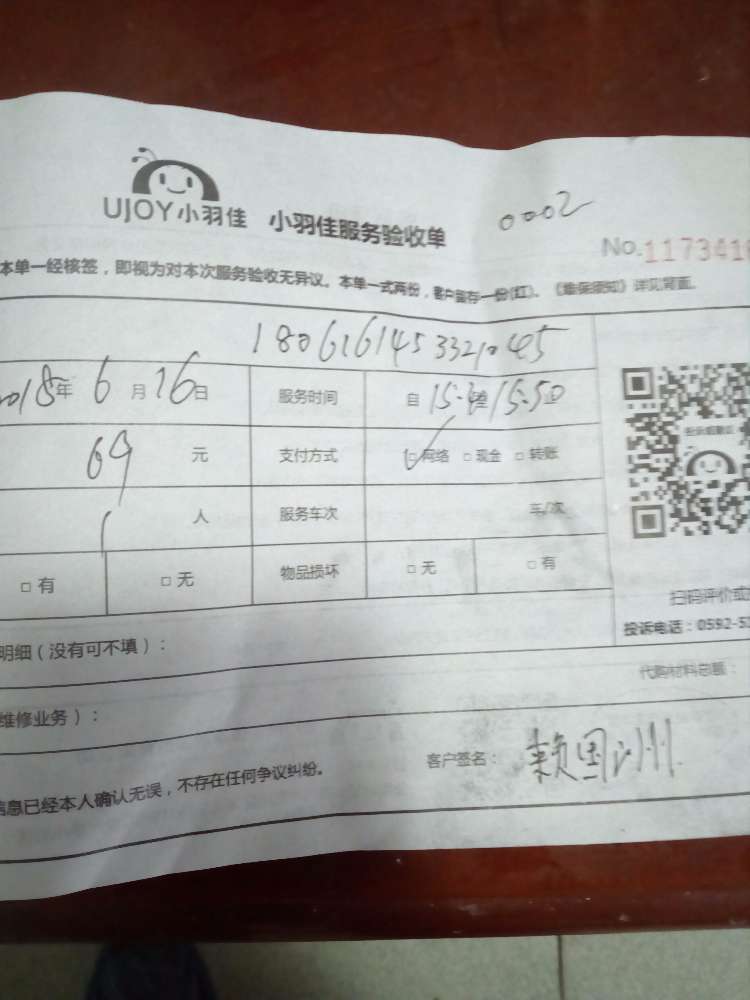 UJOY小羽佳 小羽佳服务验收单 0002
No.1173416
本单一经核签,即视为对本次服务验收无异议。本单一式两份,客户留存一份(红)。《维保须知》详见背面。
1806161453321045
2018年6月16日 服务时间 自15:至15:50
69元 支付方式 ☑网络 □现金 □转账
1人 服务车次 车/次
□有 □无 物品损坏 □无 □有
扫码评价或
投诉电话:0592-5
明细(没有可不填):
代购材料总额:
维修业务):
客户签名:赖国洲
信息已经本人确认无误,不存在任何争议纠纷。